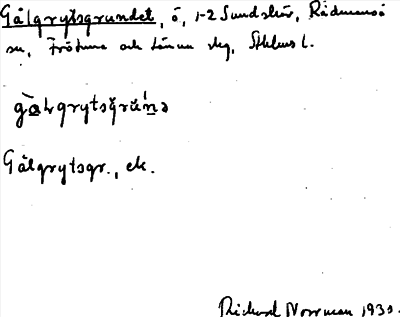 Gålgrytsgrundet, ö, 1-2 Sundskär, Rådmansö
sn, Frötuna och Länna skg, Sthlms l.
Gålgrytsgr., ek.
Richard Norrman 1930.